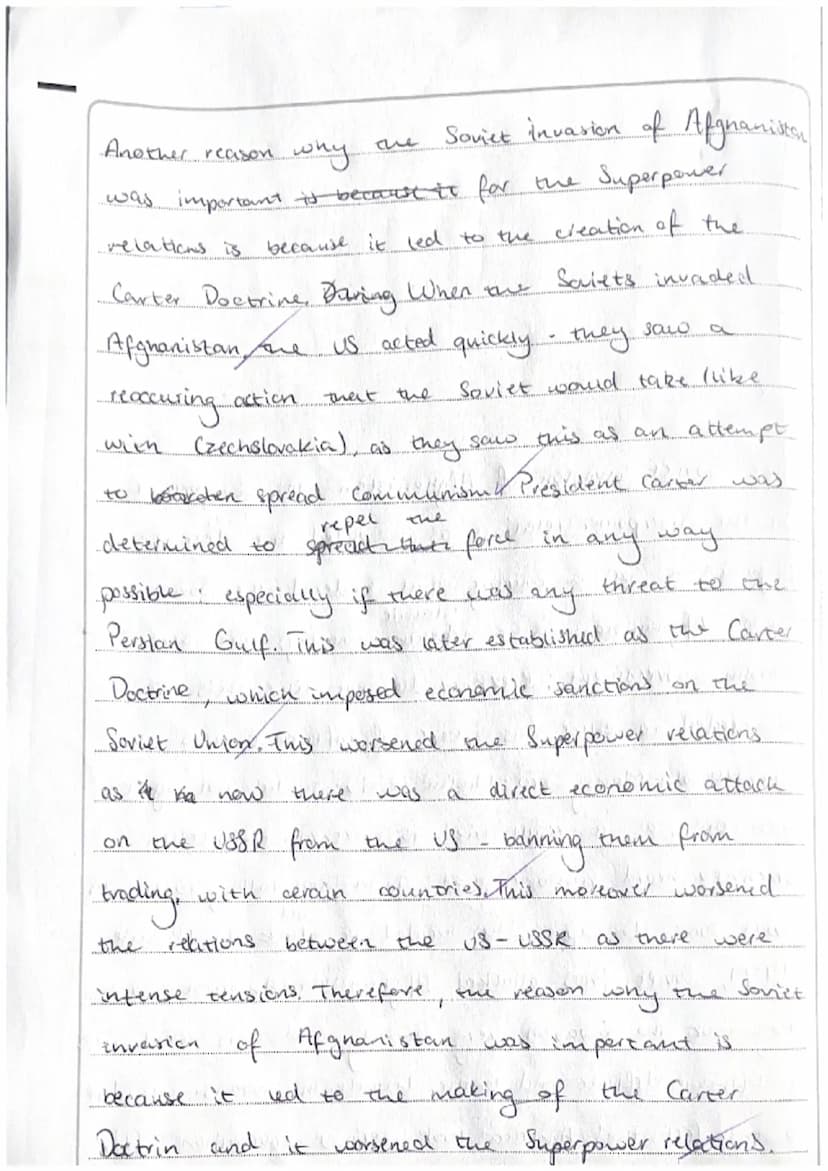 Another reason why the Soviet invasion of Afghanistan
was important is because it for the Superpower
relations is because it led to the creation of the
Carter Doctrine. During When the Soviets invaded
Afghanistan, the US acted quickly - they saw a
reoccuring action that the Soviet would take (like
with Czechslovakia), as they saw this as an attempt
to spread communism. President Carter was
repel the
determined to spread their force in any way
possible: especially if there was any threat to the
Persian Gulf. This was later established as the Carter
Doctrine, which imposed economic sanctions on the
Soviet Union. This worsened the Superpower relations
as it now there was a direct economic attack
on the USSR from the US - banning them from
trading, with cerain countries. This moreover worsened
the relations between the US-USSR as there were
intense tensions. Therefore, the reason why the Soviet
invasion of Afghanistan was important is
because it led to the making of the Carter
Doctrin and it worsened the Superpower relations.